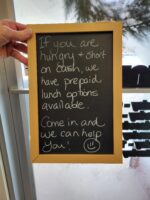 If you are
hungry + short
on cash, we
have prepaid
lunch options
available.
Come in and
we can help
you!